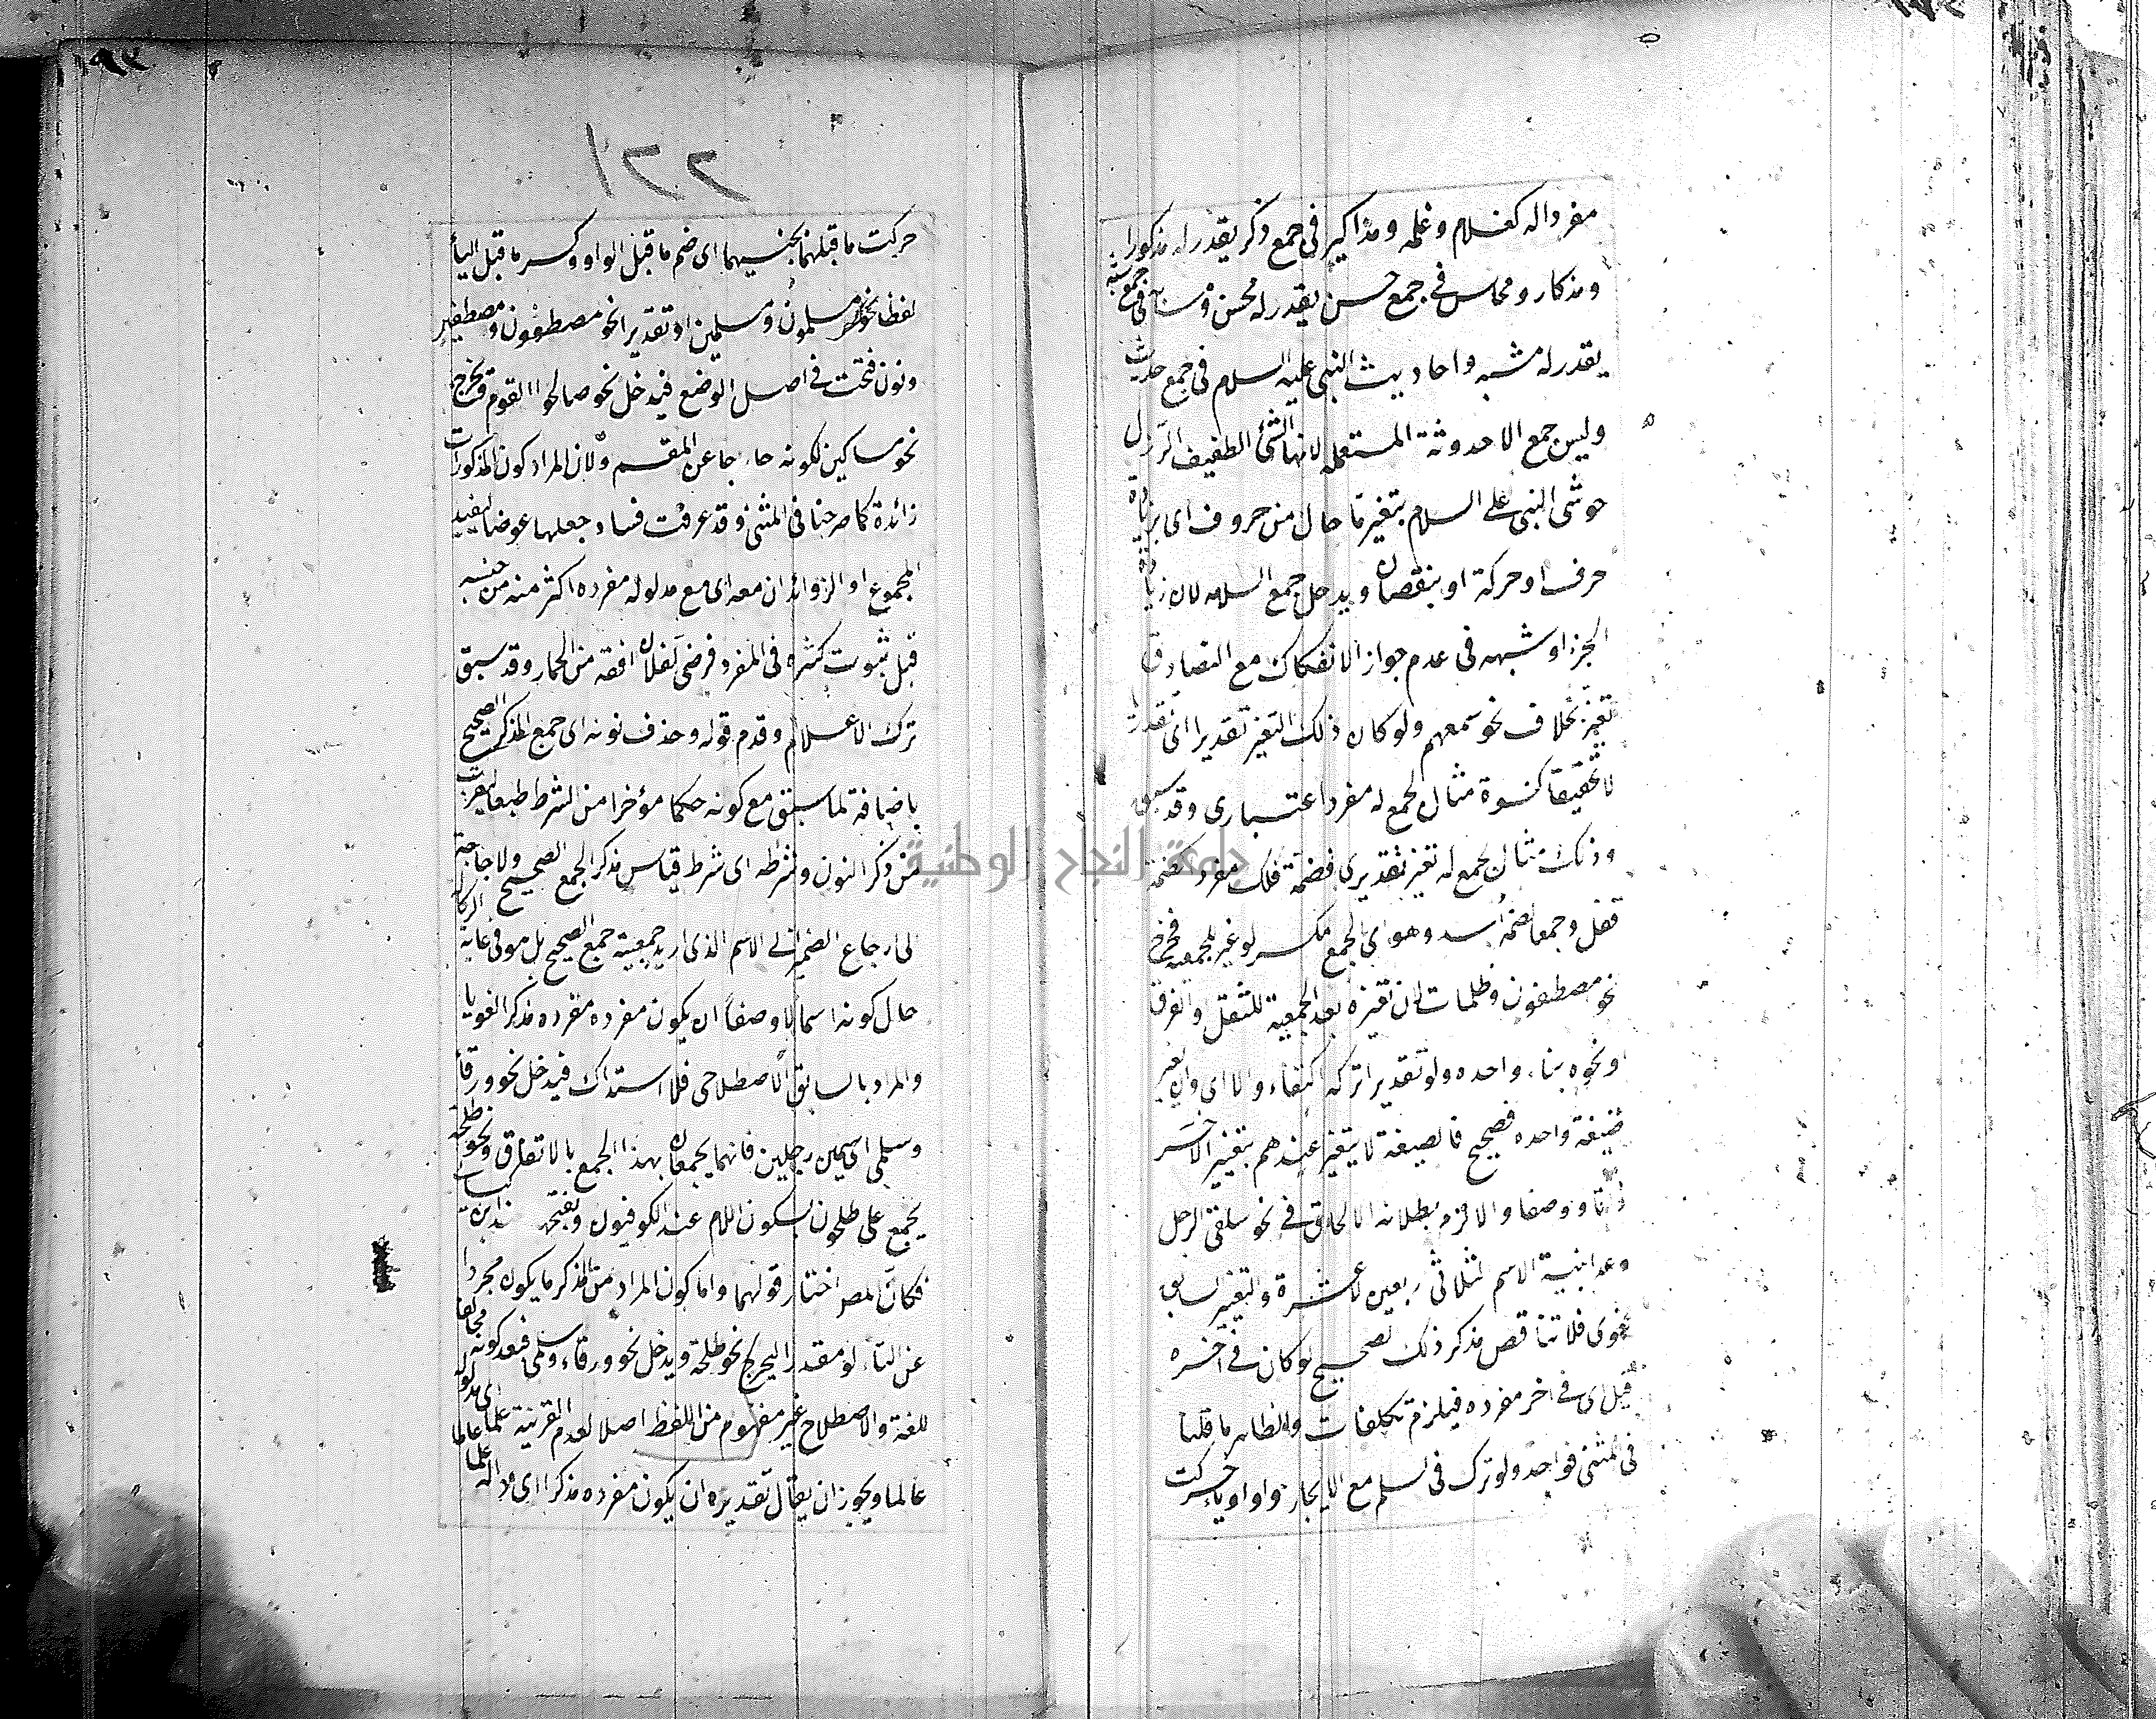 مفردا له كغلام وغلمه ومذاكير فى جمع ذكر يقدر له مذكورا
ومذكار ومحاسن فى جمع حسن يقدر له محسن ومشابه فى جمع شبه
يقدر له مشبه واحاديث النبى عليه السلام فى جمع حديث
وليس جمع الاحدوثة المستعمله لانها الشئ الطفيف الرذل
حوشى النبى عليه السلام بتغير ما حال من حروف اى بزيادة
حرف او حركة او بنقصان ويدخل جمع السلامه لان زيادة
الجزء او شبهه فى عدم جواز الانفكاك مع التصادق
تغير بخلاف نحو سمعهم ولو كان ذلك التغير تقديرا اى تقديريا
لا تحقيقا كنسوة مثال لجمع له مفرد اعتبارى وقد سبق
وفلك مثال لجمع له تغير تقديرى فضمة فلك مفردا كضمة
قفل وجمعا كضمة اسد وهو اى الجمع مكسر لو غير للجمعيه فخرج
نحو مصطفون وظلمات لان تغيره بعد الجمعية للثقل والفرق
ونحوه بناء واحده ولو تقديرا تركه اكتفاء والا اى وان لم يغير
صيغة واحده فصحيح فالصيغة لا يتغير عندهم بتغيير الآخر
ذاتا ووصفا والا لزم بطلانه الالحاق فى نحو سلقى الرجل
وعد ابنية الاسم الثلاثى اربعين لا عشرة والتغيير السابق
لغوى فلا تناقض مذكر ذلك الصحيح لو كان فى آخره
قيل اى فى اخر مفرده فيلزم تكلفات والظاهر ما قلنا
فى المثنى فواحد ولو ترك فى السلم مع الايجاز واو او ياء حركت
٢٢١
حركت ما قبلهما بجنسيهما اى ضم ما قبل الواو وكسر ما قبل الياء
لفظا نحو مسلمون ومسلمين او تقديرا نحو مصطفون ومصطفين
ونون فتحت فى اصل الوضع فيدخل نحو صالحوا القوم ويخرج
نحو مساكين لكونه خارجا عن المقسم ولان المراد كون المذكورات
زائدة كما صرحنا فى المثنى وقد عرفت فساد جعلها عوضا ليفيد
المجموع او الزوائد ان معه اى مع مدلوله مفرده اكثر منه من جنسه
قبل ثبوت كثره فى المفرد فرضى كفلان افقه من الحمار وقد سبق
ترك الاعلام وقدم قوله وحذف نونه اى جمع المذكر الصحيح
باضافة لما سبق مع كونه حكما مؤخرا من الشرط طبعا لقربه
من ذكر النون وشرطه اى شرط قياس مذكر الجمع الصحيح ولا حاجة
الى ارجاع الضمير الى الاسم الذى اريد جمعيته جمع الصحيح بل هو فى غاية الركاكة
حال كونه اسما لا وصفا ان يكون مفرده مفرده مذكرا لغويا
والمراد بالسابق الاصطلاحى فلا استدراك فيدخل نحو ورقاء
وسلمى اسمين رجلين فانهما يجمعان بهذا الجمع بالاتفاق ونحو طلحة
يجمع على طلحون بسكون اللام عند الكوفيون وبفتحه عند ابن كيسان
فكان المصر اختار قولهما واما كون المراد من المذكر ما يكون مجردا
عن التاء لو مقدرا ليخرج نحو طلحة ويدخل نحو ورقاء وسلمى فبعد كونه مخالفا
للغة والاصطلاح غير مفهوم من اللفظ اصلا لعدم القرينة علما
عالما ويجوز ان يقال تقديره ان يكون مفرده مذكرا اى مدلوله علما